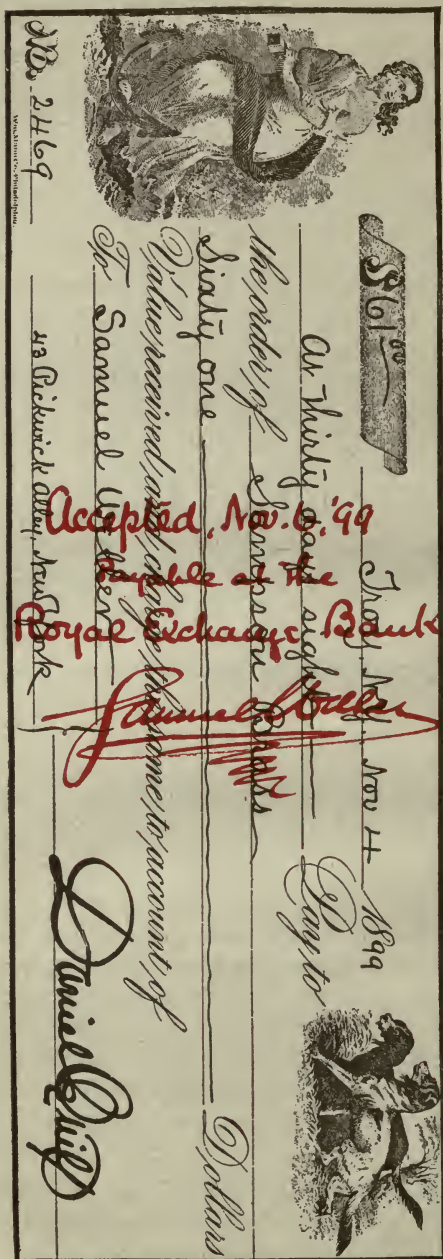 $61.00
Troy, N.Y. Nov 4 1899
At Thirty days sight Pay to
the order of Sampson Brass
Sixty one Dollars
Value received and charge the same to account of
To Samuel Weller
43 Pickwick alley, New York
Daniel Quilp
No. 2469
Accepted, Nov. 6, '99
Payable at the
Royal Exchange Bank
Samuel Weller